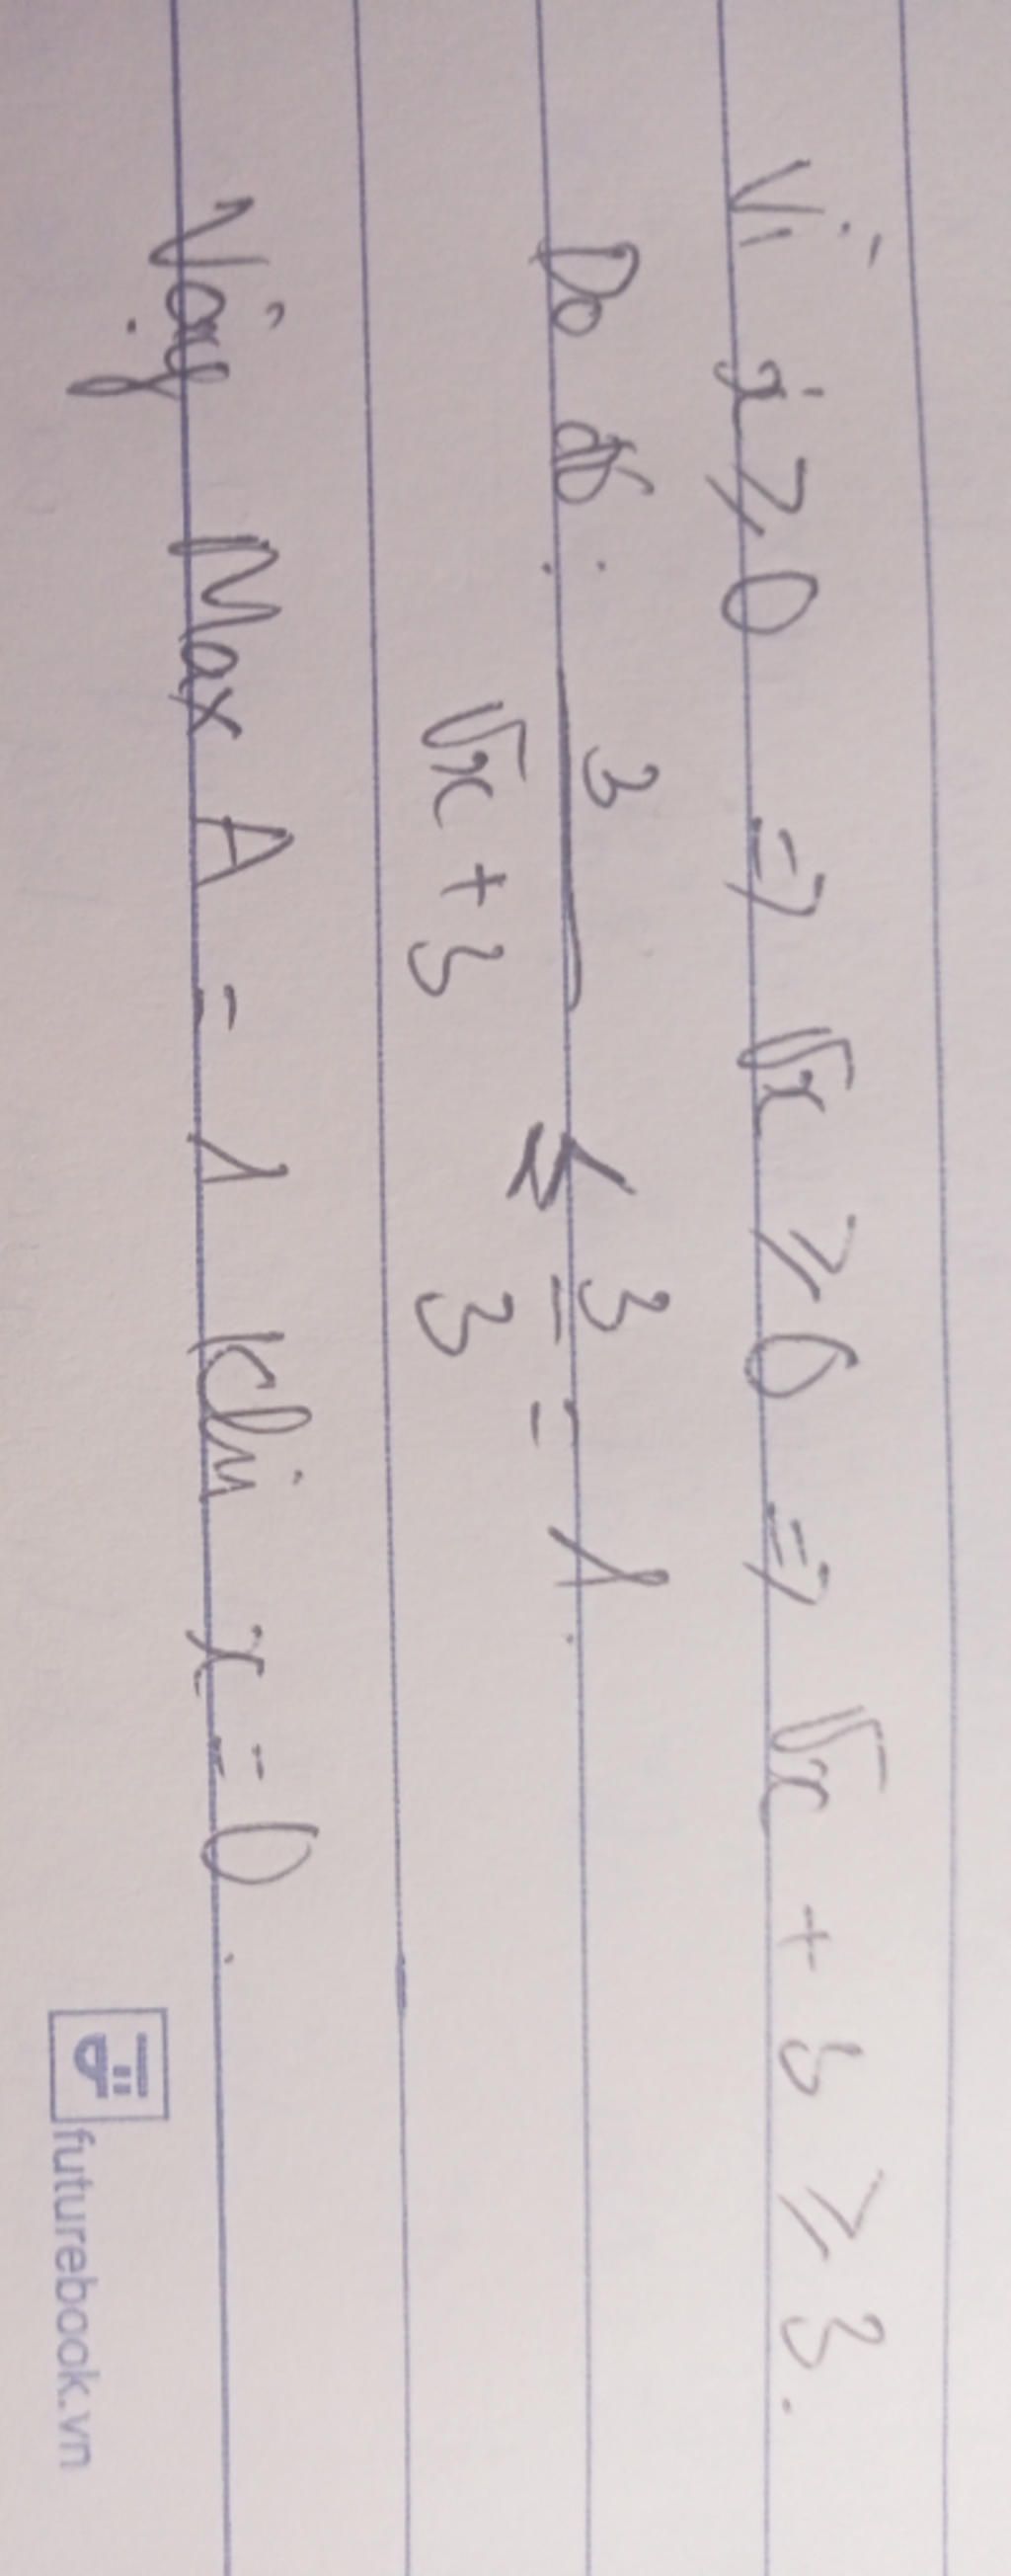 Vì x ≥ 0 => √x ≥ 0 => √x + 3 ≥ 3.
Do đó: 3/(√x + 3) ≤ 3/3 = 1.
Vậy Max A = 1 khi x = 0.
futurebook.vn